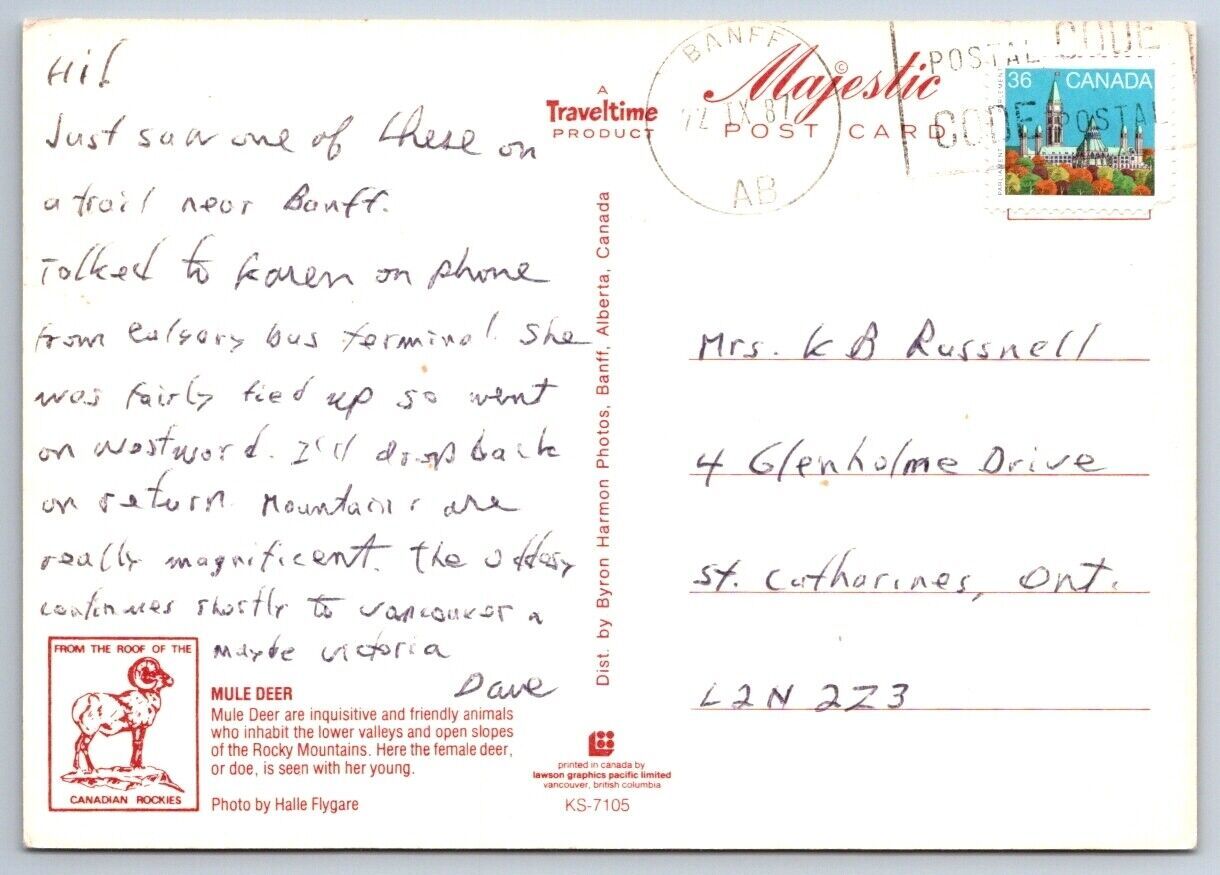 Hi!
Just saw one of these on
a trail near Banff.
Talked to Karen on phone
from Calgary bus terminal. She
was fairly tied up so went
on westward. I'll drop back
on return. Mountains are
really magnificent. The oddesy
continues shortly to Vancouver n
maybe Victoria
Dave
FROM THE ROOF OF THE
CANADIAN ROCKIES
MULE DEER
Mule Deer are inquisitive and friendly animals
who inhabit the lower valleys and open slopes
of the Rocky Mountains. Here the female deer,
or doe, is seen with her young.
Photo by Halle Flygare
A
Traveltime
PRODUCT
Dist. by Byron Harmon Photos, Banff, Alberta, Canada
printed in canada by
lawson graphics pacific limited
vancouver, british columbia
KS-7105
Majestic©
POST CARD
BANFF
IX 87
AB
POSTAL CODE
CODE POSTAL
36 CANADA
Mrs. K B Russnell
4 Glenholme Drive
St. Catharines, Ont.
L2N 2Z3